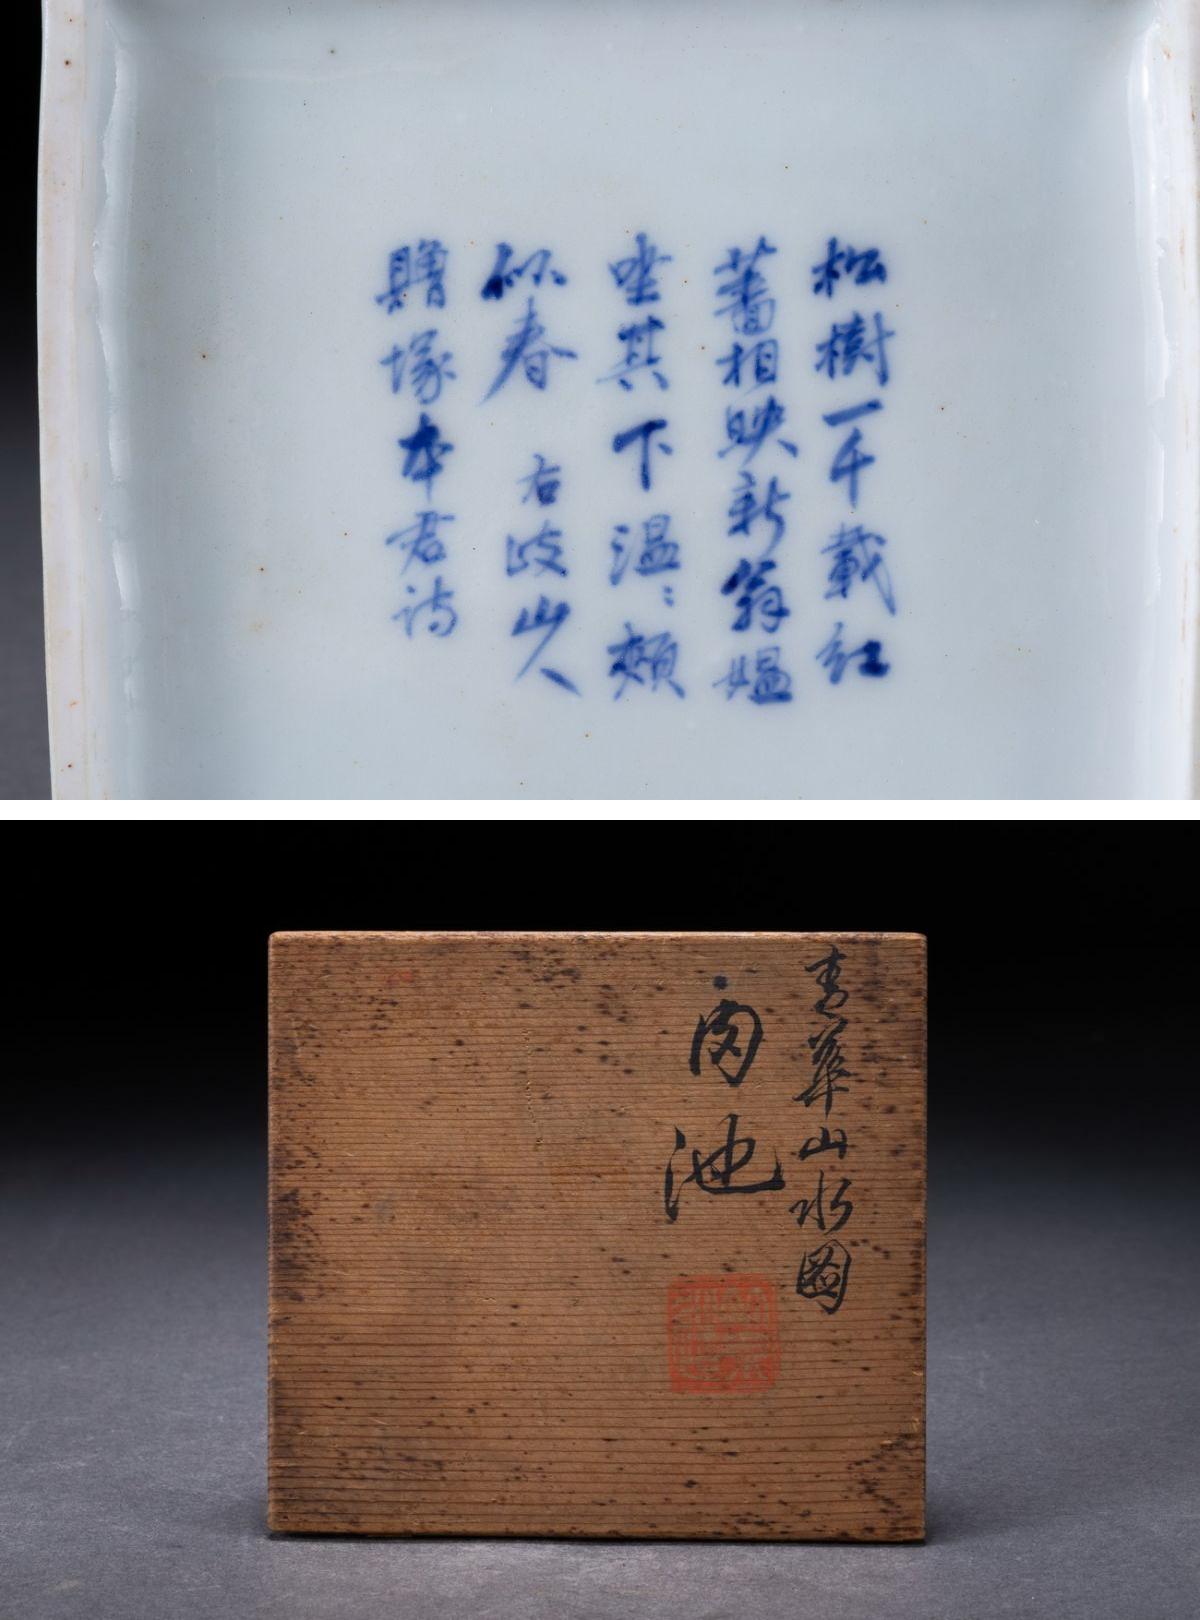 松樹一千載紅
蕃相映新翁媼
坐其下溫〻頰
似春　右岐山人
贈塚本君詩
青華山水図
肉池